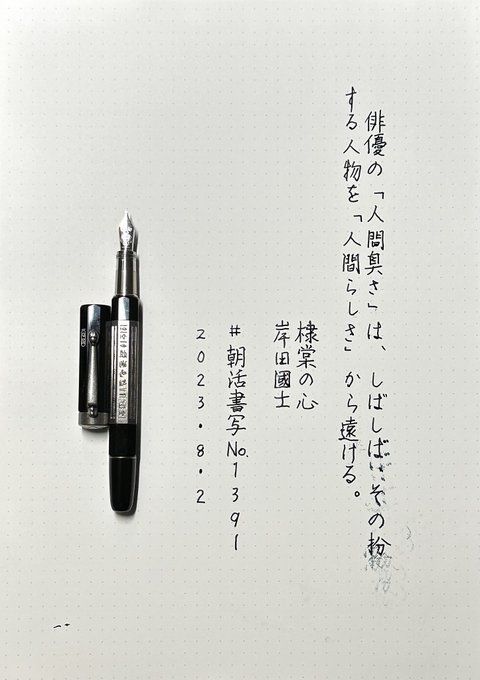 俳優の「人間臭さ」は、しばしば、その扮
する人物を「人間らしさ」から遠ける。
棣棠の心
岸田國士
#朝活書写No.1391
2023.8.2